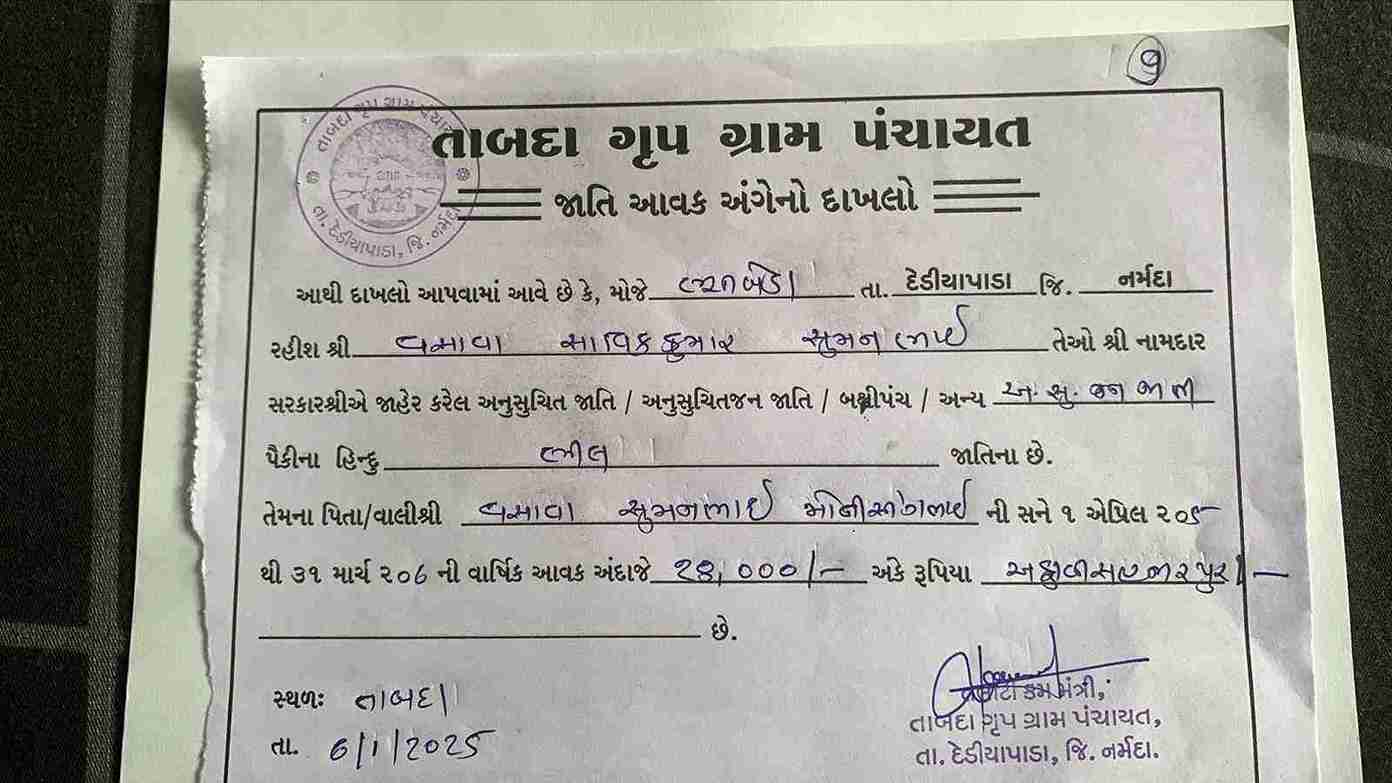 ૭
તાબદા ગૃપ ગ્રામ પંચાયત
જાતિ આવક અંગેનો દાખલો
તાબદા ગૃપ ગ્રામ પંચાયત
તા. દેડીયાપાડા, જિ. નર્મદા
આથી દાખલો આપવામાં આવે છે કે, મોજે તા. દેડીયાપાડા જિ. નર્મદા
રહીશ શ્રી વસાવા સાવિકકુમાર સુમનભાઈ તેઓ શ્રી નામદાર
સરકારશ્રીએ જાહેર કરેલ અનુસુચિત જાતિ / અનુસુચિતજન જાતિ / બક્ષીપંચ / અન્ય અ. સુ. જન જાતી
પૈકીના હિન્દુ ભીલ જાતિના છે.
તેમના પિતા/વાલીશ્રી વસાવા સુમનભાઈ ની સને ૧ એપ્રિલ ૨૦૫
થી ૩૧ માર્ચ ૨૦૬ ની વાર્ષિક આવક અંદાજે ૨૪,૦૦૦/- અંકે રૂપિયા /-
છે.
સ્થળઃ તાબદા
તા. 6/1/2025
તલાટી કમ મંત્રી,
તાબદા ગૃપ ગ્રામ પંચાયત,
તા. દેડીયાપાડા, જિ. નર્મદા.